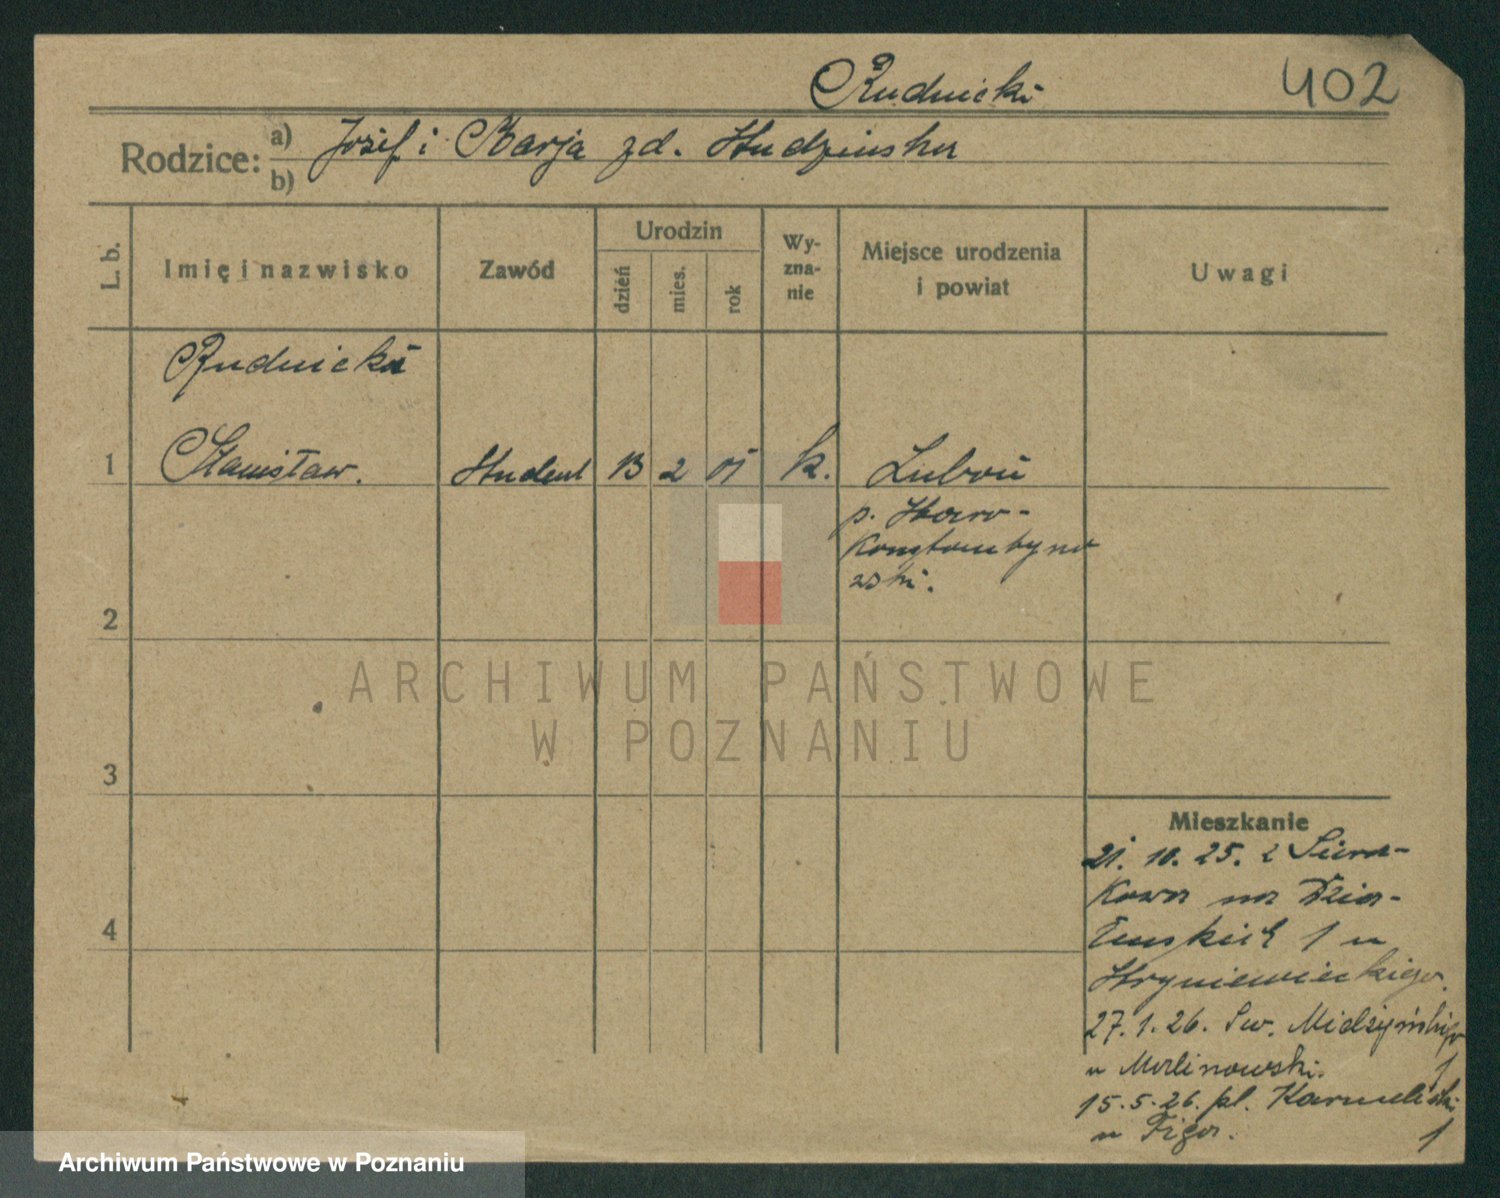 Rudnicki 402
Rodzice: a) Józef i Marja zd. Studzinska
b)
L. b.
Imię i nazwisko
Zawód
Urodzin
dzień
mies.
rok
Wy-
zna-
nie
Miejsce urodzenia
i powiat
Uwagi
Rudnicki
1 Stanisław. Student 13 2 01 k. Luboń
p. Staro-
Konstantynow
ski.
2
3
4
Mieszkanie
21. 10. 25. z Siera-
kowa na Dzia-
łyńskich 1 u
Hryniewieckiego.
27. 1. 26. Św. Mielżyńskiego 1
u Malinowski.
15. 5. 26. pl. Karmelicki 1
u Figor.
ARCHIWUM PAŃSTWOWE
W POZNANIU
Archiwum Państwowe w Poznaniu